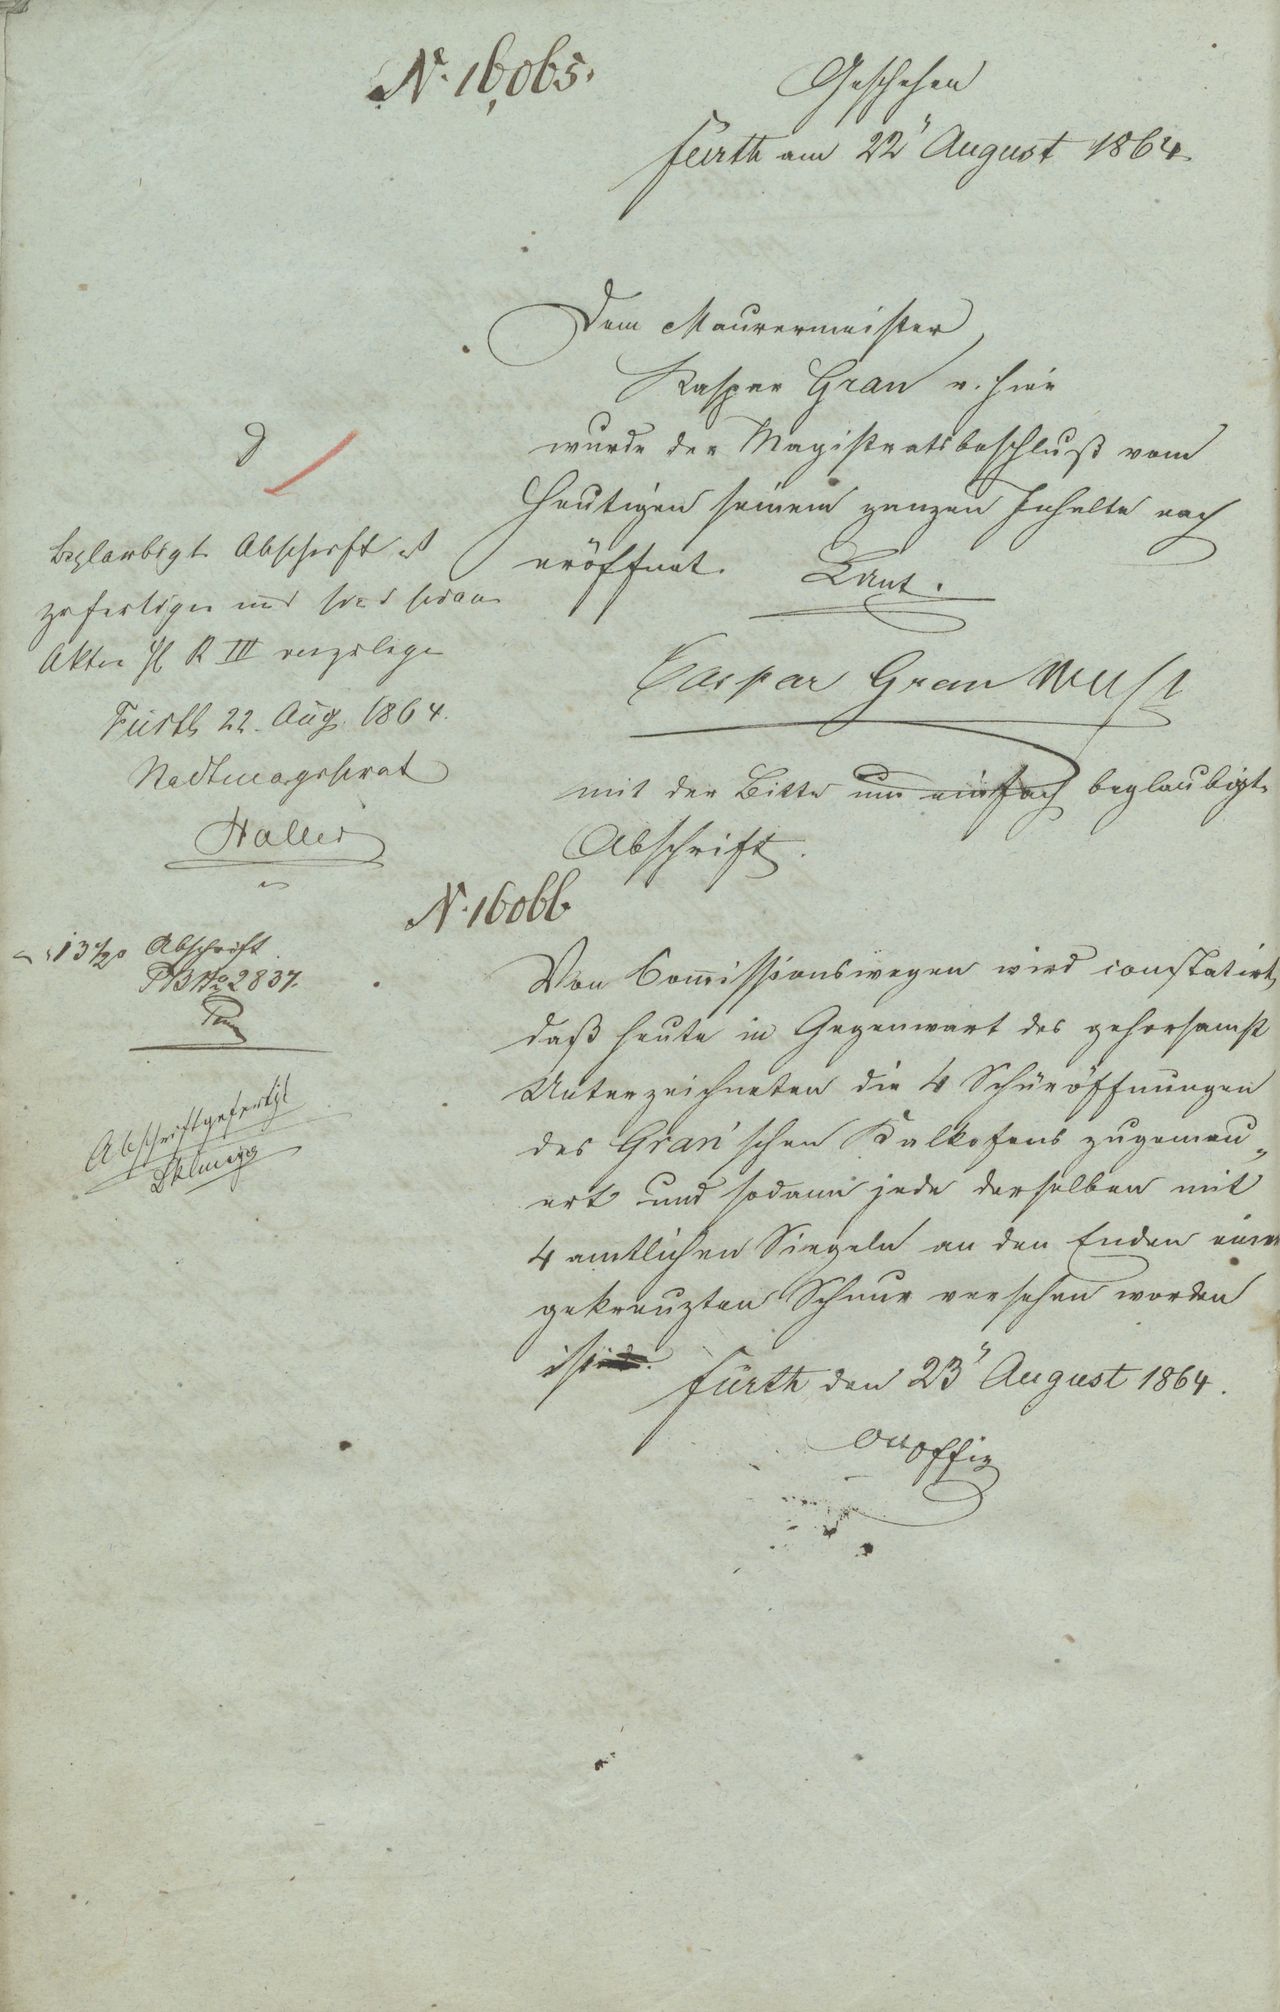 N. 16,065.
Geschehen
Fürth am 22" August 1864
Dem Maurermeister
Kaspar Gran v. hier
wurde der Magistratsbeschluß vom
Heutigen seinem ganzen Inhalte nach
eröffnet.
Caspar Gran
mit der Bitte um einfach beglaubigte
Abschrift.
Beglaubigte Abschrift ist
zu fertigen und
Akten R III
Fürth 22. Aug. 1864.
Stadtmagistrat
Haller
Abschrift
No 2837.
Abschrift gefertigt
N. 16066
Von Commissionswegen wird constatirt,
daß heute in Gegenwart des gehorsamst
Unterzeichneten die 4 Schüröffnungen
des Gran'schen Kalkofens zugemau-
ert und sodann jede derselben mit
4 amtlichen Siegeln an den Enden einer
gekreuzten Schnur versehen worden
ist.
Fürth den 23" August 1864.